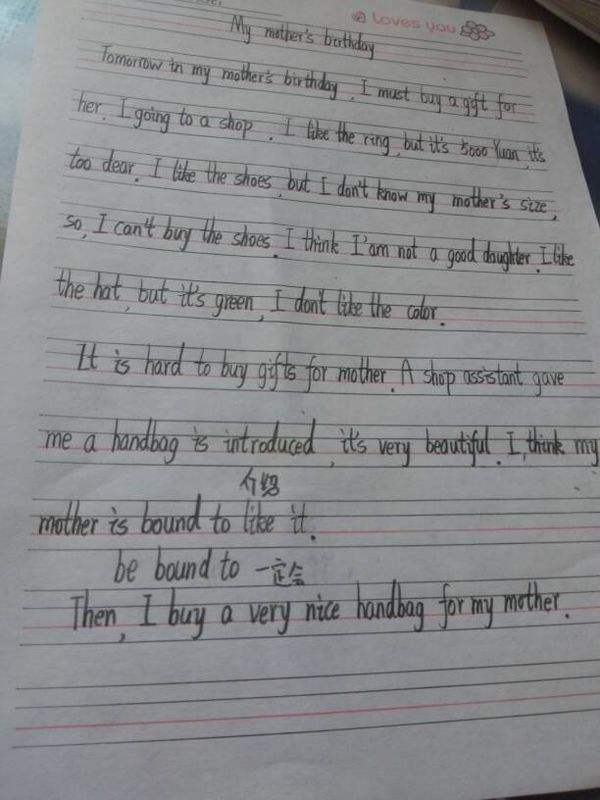 loves you
My mother's birthday
Tomorrow in my mother's birthday. I must buy a gift for
her. I going to a shop. I like the ring, but it's 5000 Yuan, it's
too dear. I like the shoes, but I don't know my mother's size,
so, I can't buy the shoes. I think I'am not a good daughter. I like
the hat, but it's green, I don't like the color.
It is hard to buy gifts for mother. A shop assistant gave
me a handbag is introduced, it's very beautiful. I think my
介绍
mother is bound to like it.
be bound to 一定会
Then, I buy a very nice handbag for my mother.